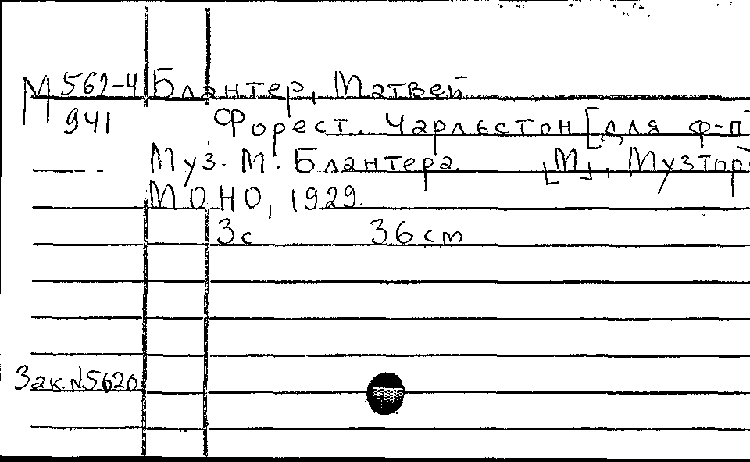 М 562-4 Блантер, Матвей
941 Форест. Чарльстон [для ф-п
Муз. М. Блантера. [М], Музтор
МОНО, 1929.
3с 36 cm
Зак. N5620